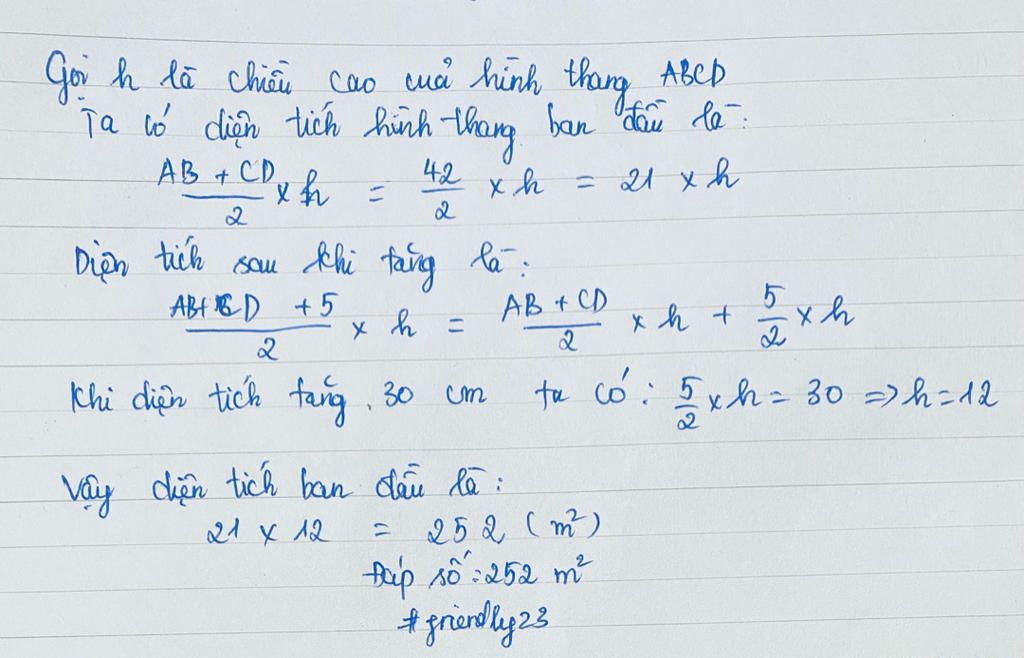 Gọi h là chiều cao cuả hình thang ABCD
Ta có diện tích hình thang ban đầu là:
AB + CD/2 x h = 42/2 x h = 21 x h
Diện tích sau khi tăng là:
AB + CD + 5/2 x h = AB + CD/2 x h + 5/2 x h
Khi diện tích tăng 30 cm ta có: 5/2 x h = 30 => h = 12
Vậy diện tích ban đầu là:
21 x 12 = 252 (m²)
Đáp số: 252 m²
#friendly23